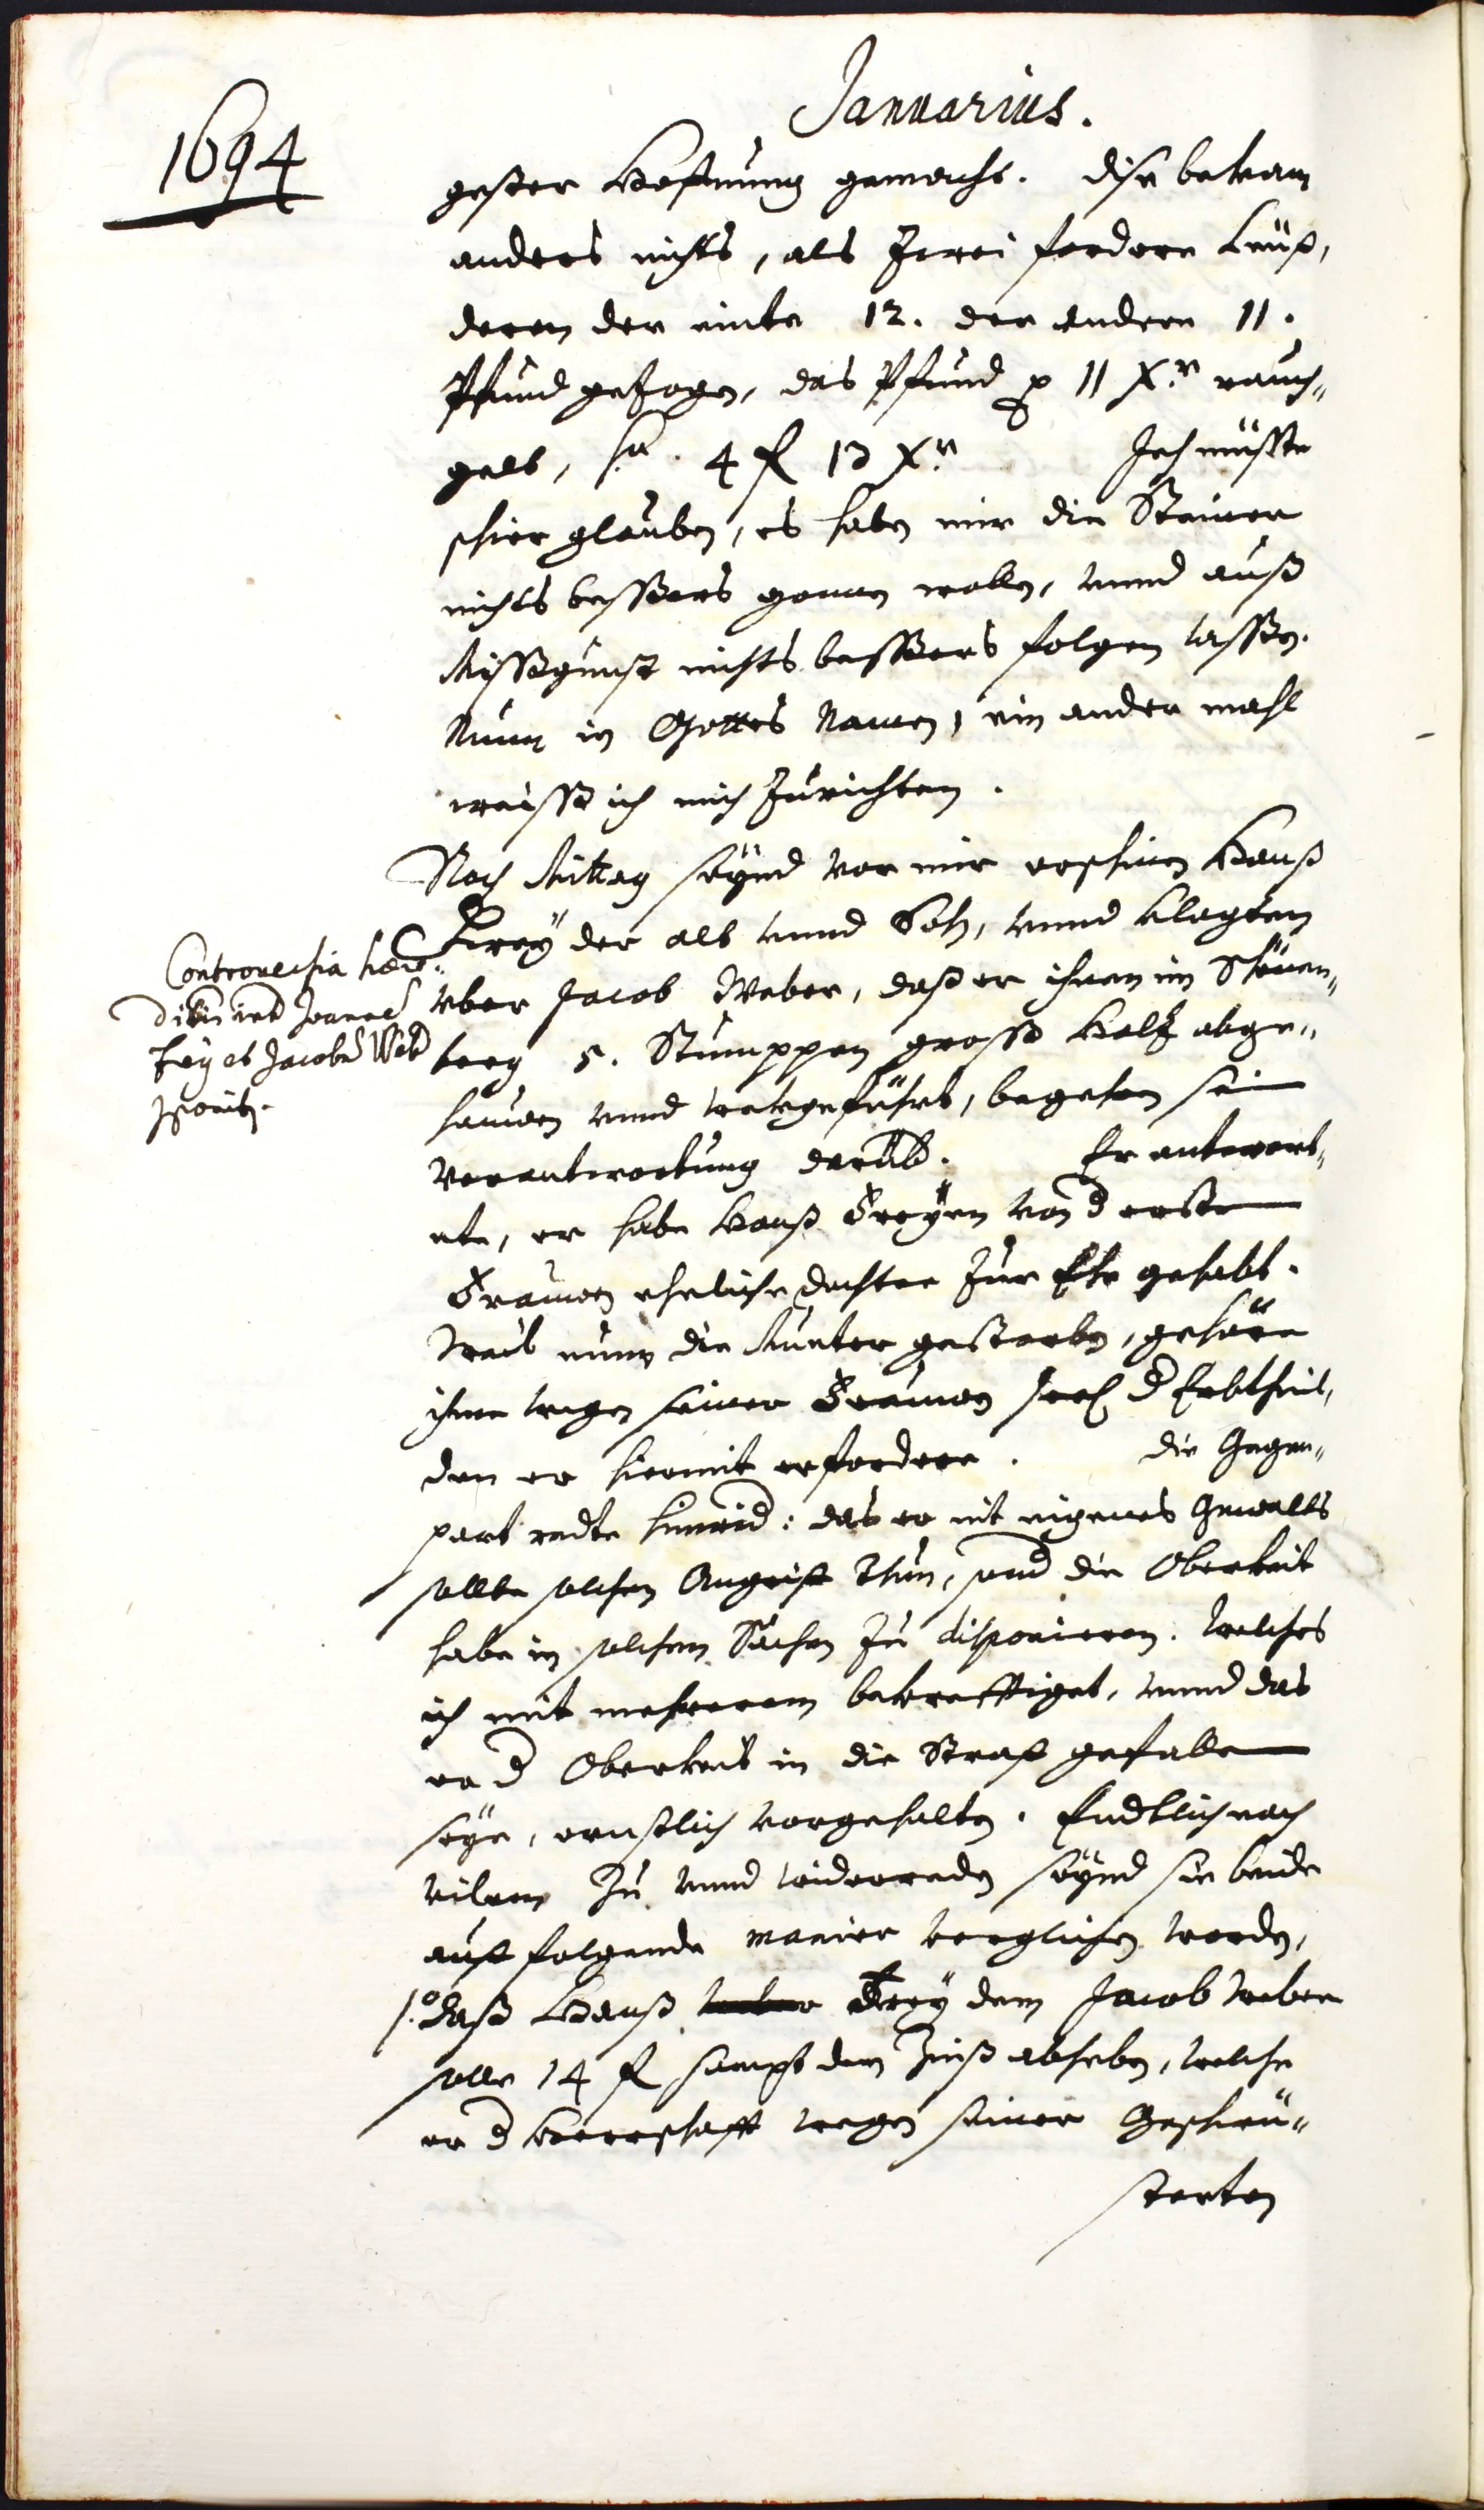 Januarius.
1694
gester Hoffnung gemacht. Dise bekam
anders nichts, als Zwei fordere
deren der einte 12. der andere 11.
Pfund gezogen, das Pfund p 11 Xr. rauch„
gelt, fa. 4 fl 13 Xr. Jch müsste
schier glauben, es haben mir die Steiner
nichts bessers gonnen wollen, vnnd auß
Missgunst nichts bessers folgen lassen.
Nunn in Gottes Namen, ein ander mahl
weiss ich mich Zurichten.
Nach Mittag seÿnd vor mir erschinen Hanß
Freÿ der alt vnnd Soh, vnnd klagten
vber Jacob Weber, daß er ihnen im Schönen„
berg 5. Stumppen grosse Holtz abge„
hauwen vnnd wekgeführt, begehren sein
verantwortung darüb. Er antwort„
ete, er habe Hanß Freÿen von d ersten
Frauwen eheliche dochter Zur Ehe gehabt.
Weil nunn die Muoter gestorben, gehöre
ihme wegen seiner Frauwen seel. d Erbtheil,
den er hiermit erfordere. Die Gegen„
part redte hinwid: das er nit eigenes Gewalts
sollte solchen Angriff Thun, sond die Oberkeit
habe in solchem Sachen Zu disponieren. Welches
ich mit mehrerem bekrefftiget, vnnd das
er d Oberkeit in die Straff gefallen
seÿe, ernstlich vorgehalten. Endtlich nach
vilem Zu vnnd widerreden seÿnd sie beide
auff folgende manier verglichen worden,
1.o daß Hanß Freÿ dem Jacob Weber
solle 14 fl sampt dem Zinß abheben, welche
er d Herrschafft wegen seiner Geschwü„
sterten
Controversia haere„
ditaria int Joannes
Freÿ et Jacobum Web